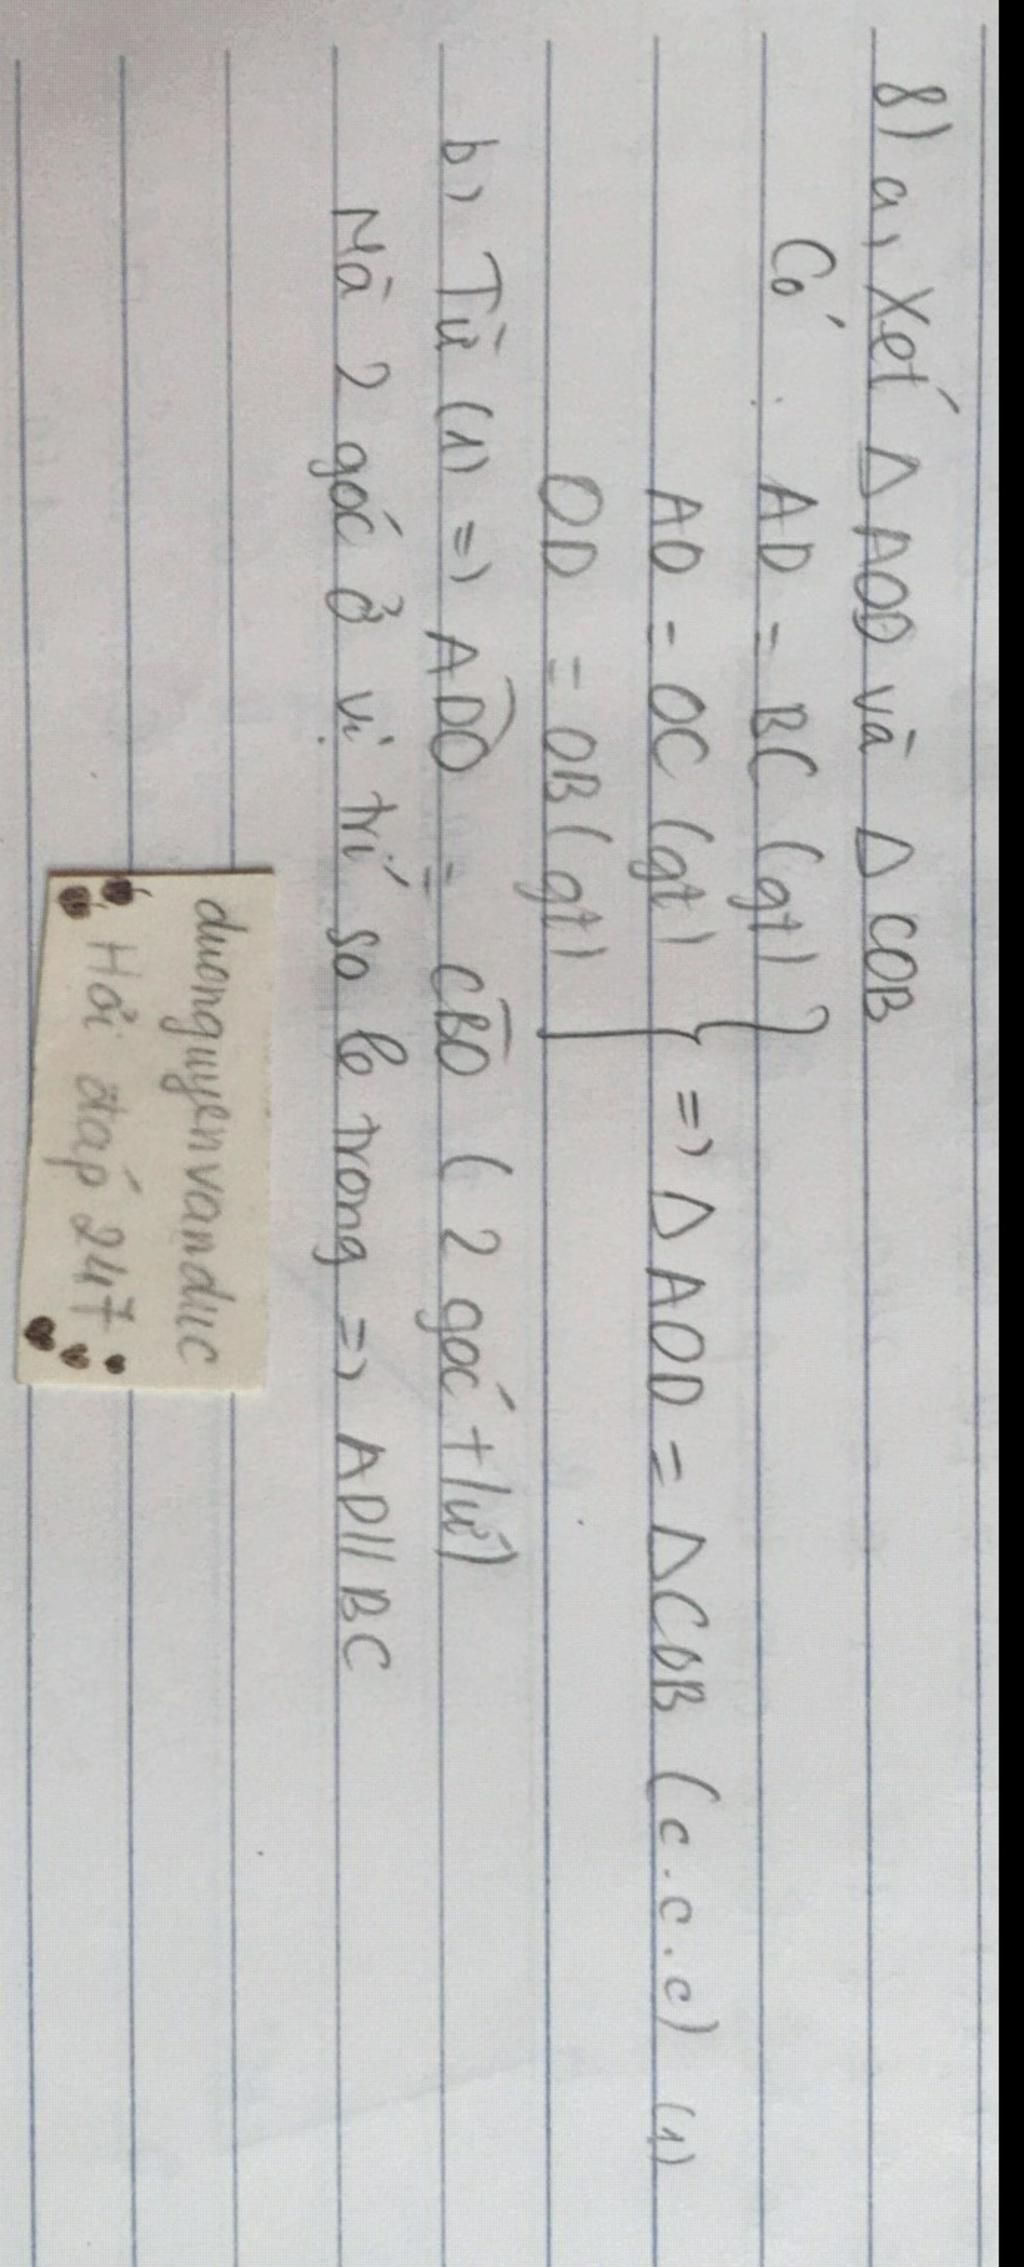 8) a, Xét Δ AOD và Δ COB
Có : AD = BC (gt)
AO = OC (gt) => Δ AOD = Δ COB (c.c.c) (1)
OD = OB (gt)
b, Từ (1) => ADO = CBO ( 2 góc t/ứ)
Mà 2 góc ở vị trí so le trong => AD // BC
duongnguyenvanduc
Hỏi đáp 247